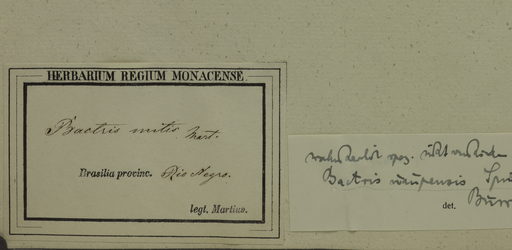 HERBARIUM REGIUM MONACENSE
Bactris mitis Mart.
Brasilia provinc. Rio Negro.
legt. Martius.
Bactris uaupensis Spru
det. Burr